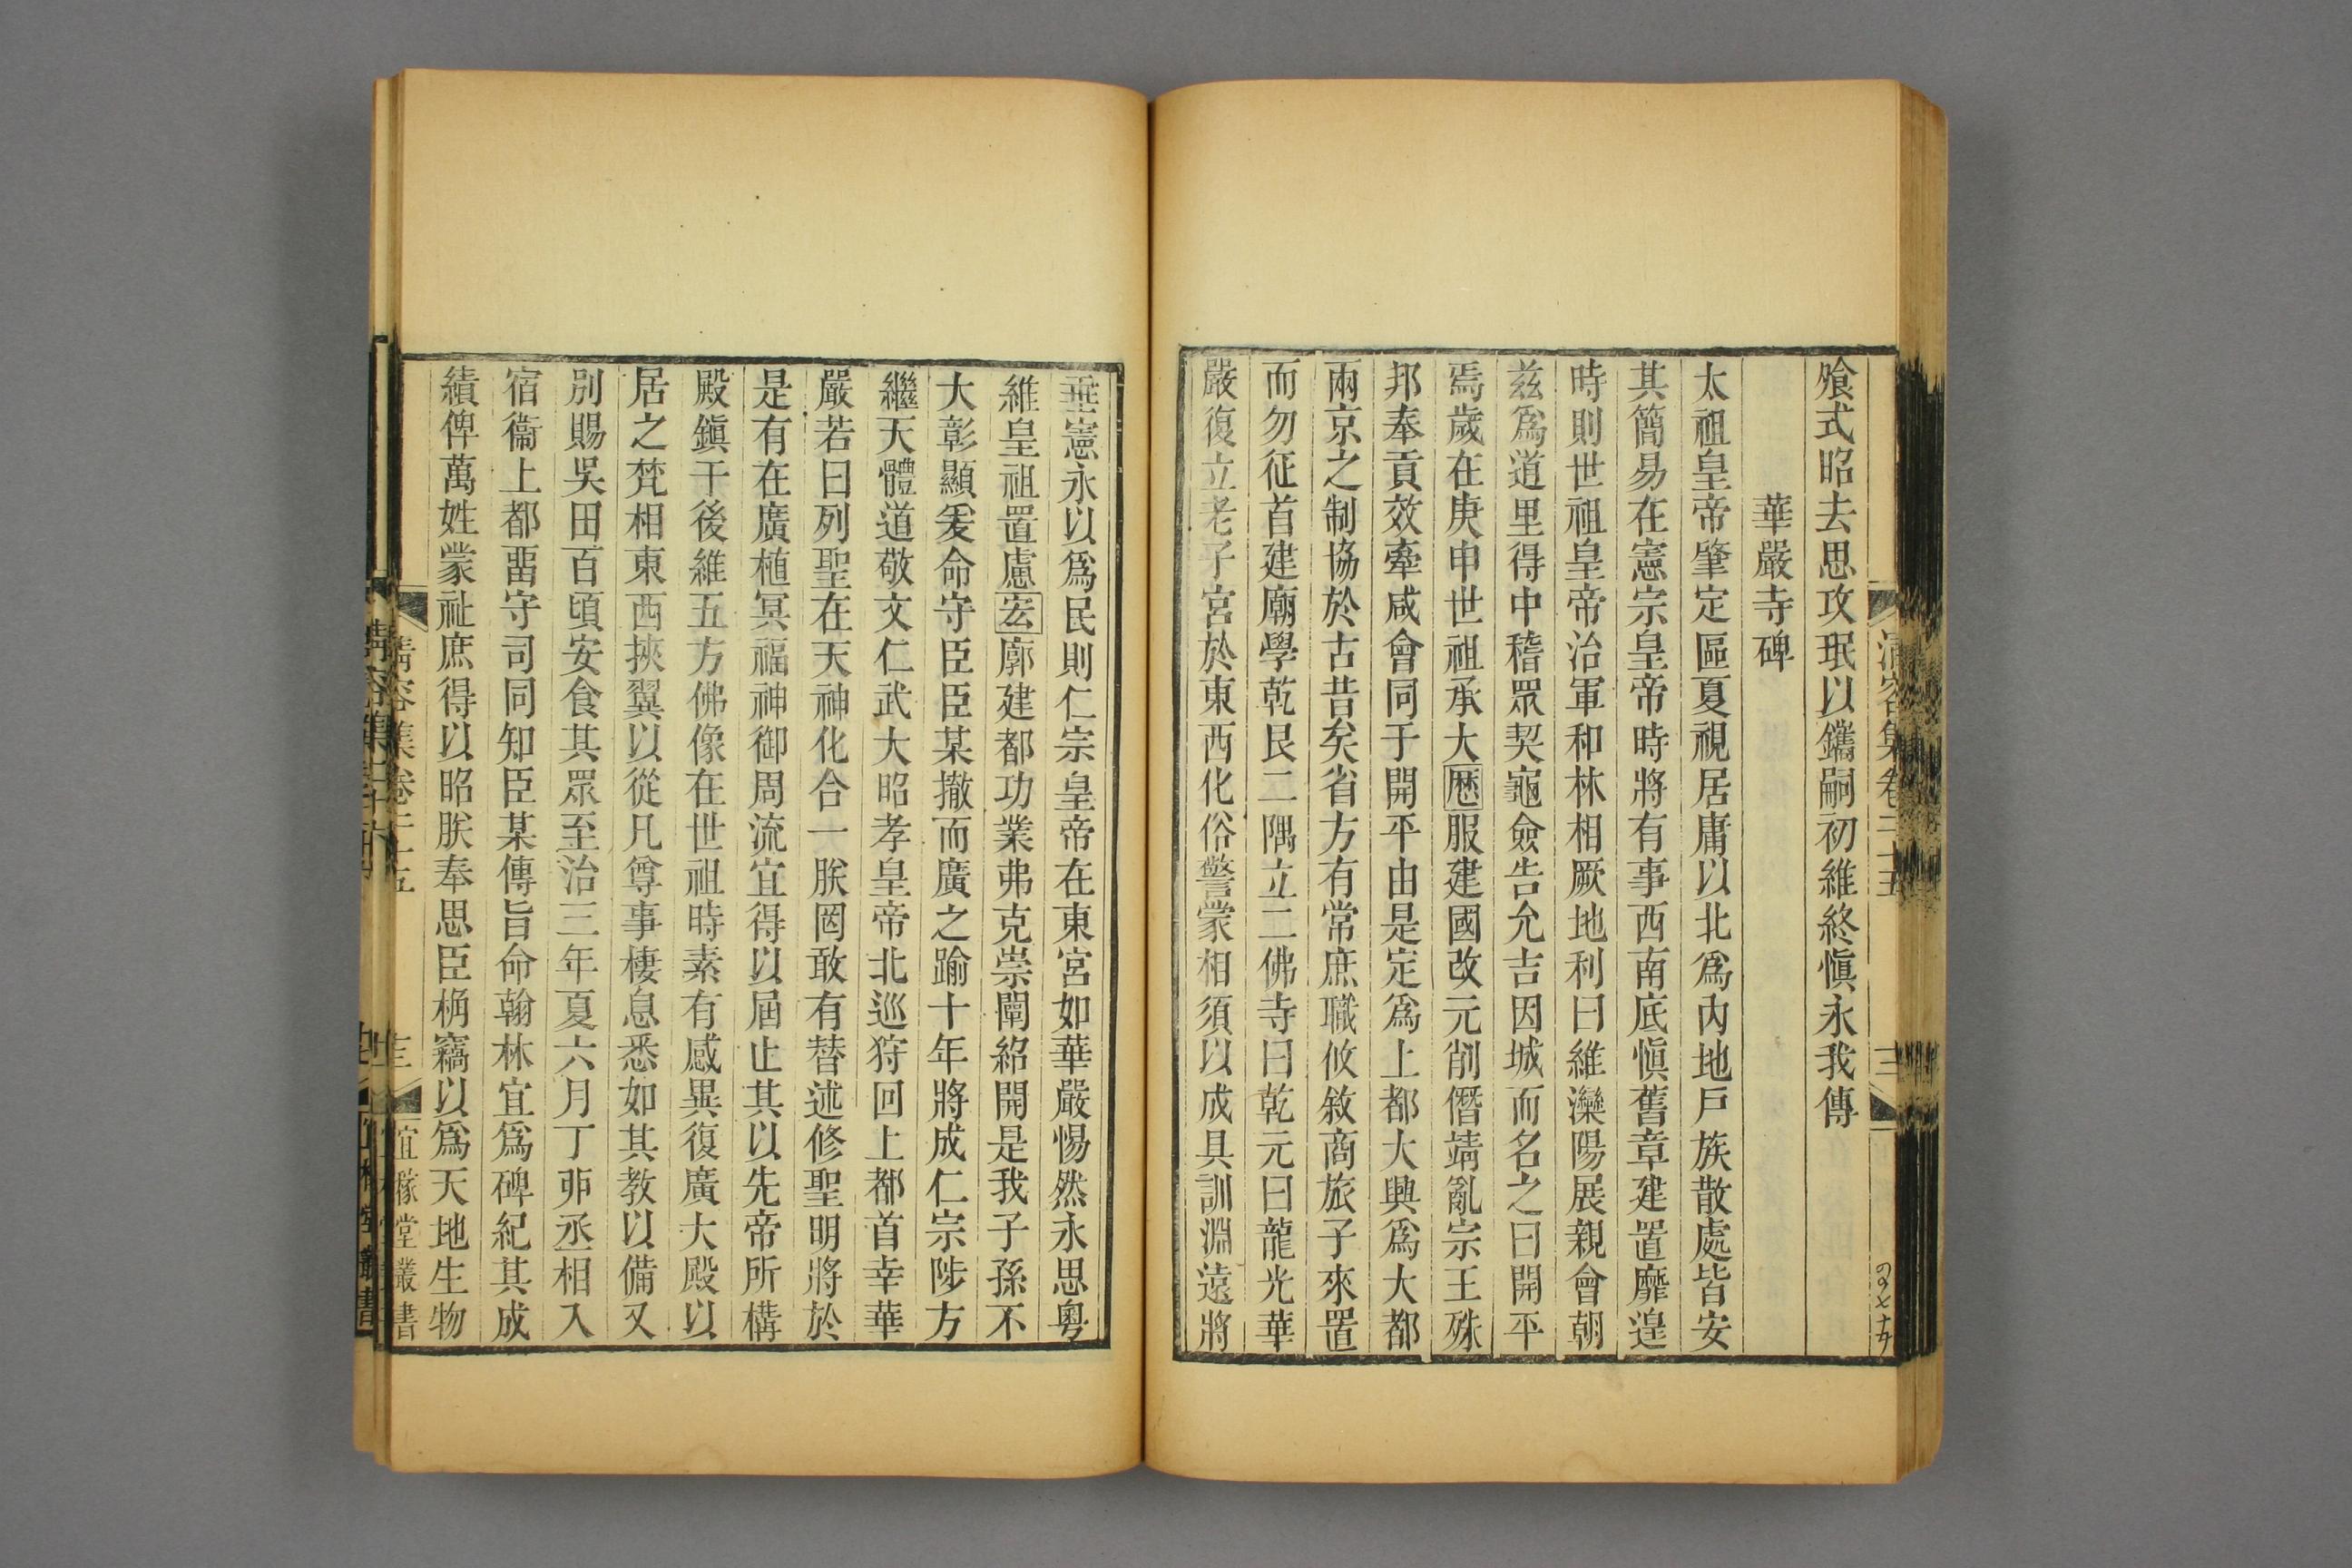 飧式昭去思攻珉以鐫嗣初維終愼永我傳
華嚴寺碑
太祖皇帝肇定區夏視居庸以北爲內地戶族散處皆安
其簡易在憲宗皇帝時將有事西南底愼舊章建置靡遑
時則世祖皇帝治軍和林相厥地利曰維灤陽展親會朝
茲爲道里得中稽眾契龜僉告允吉因城而名之曰開平
焉歲在庚申世祖承大歷服建國改元削僭靖亂宗王殊
邦奉貢效牽咸會同于開平由是定爲上都大興爲大都
兩京之制協於古昔矣省方有常庶職攸敘商旅子來置
而勿征首建廟學乾艮二隅立二佛寺曰乾元曰龍光華
嚴復立老子宮於東西化俗警蒙相須以成具訓淵遠將
垂憲永以爲民則仁宗皇帝在東宮如華嚴惕然永思粵
維皇祖置慮宏廓建都功業弗克崇闡紹開是我子孫不
大彰顯爰命守臣臣某撤而廣之踰十年將成仁宗陟方
繼天體道敬文仁武大昭孝皇帝北巡狩回上都首幸華
嚴若曰列聖在天神化合一朕罔敢有替述修聖明將於
是有在廣植冥福神御周流宜得以屆止其以先帝所構
殿鎭干後維五方佛像在世祖時素有感異復廣大殿以
居之梵相東西挾翼以從凡尊事棲息悉如其教以備又
別賜吳田百頃安食其眾至治三年夏六月丁丣丞相入
宿衞上都畱守司同知臣某傳旨命翰林宜爲碑紀其成
績俾萬姓蒙祉庶得以昭朕奉思臣桷竊以爲天地生物
清容集卷二十五
三
清容集卷二十五
宜稼堂叢書